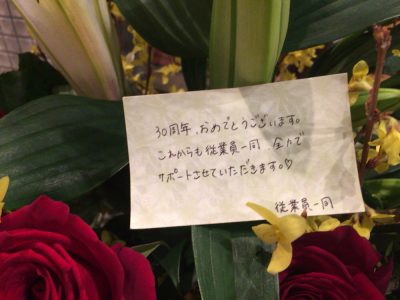 30周年、おめでとうございます。
これからも従業員一同 全力で
サポートさせていただきます。♡
従業員一同